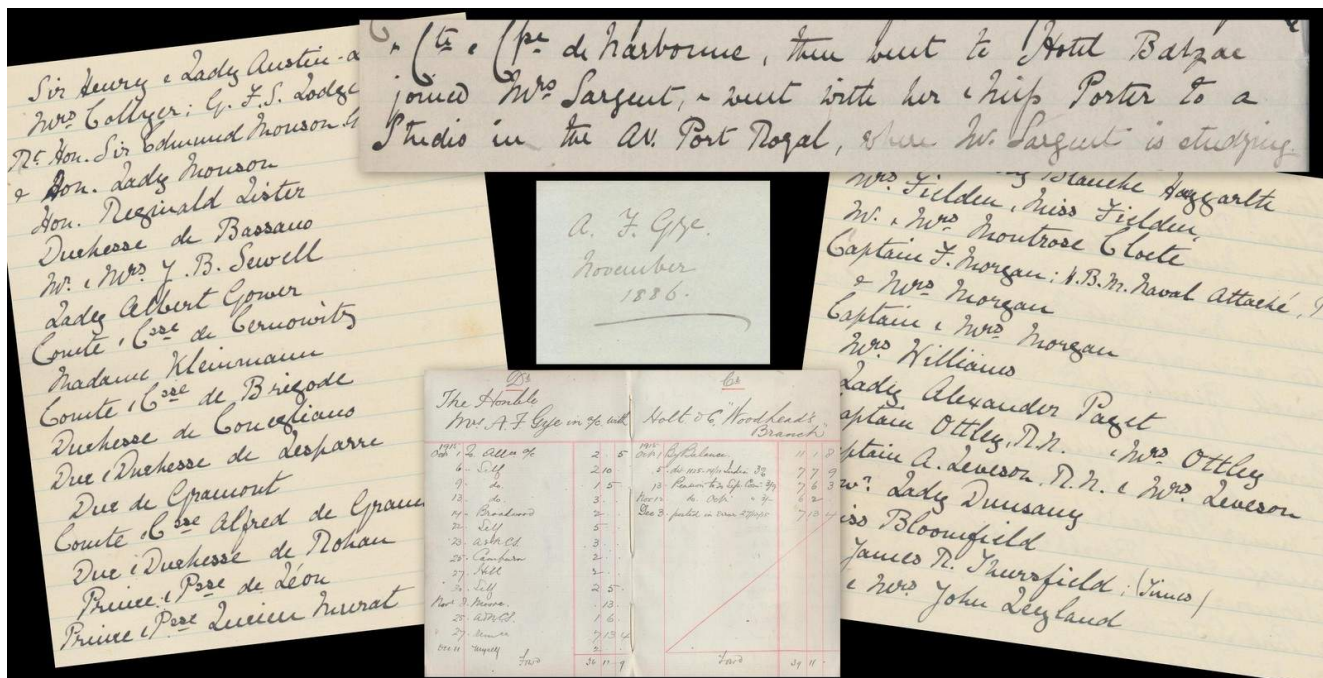 Sir Henry & Lady Austin-
Mrs Collyer; G. F. S. Lodge
Rt Hon. Sir Edmund Monson
& Hon. Lady Monson
Hon. Reginald Lister
Duchesse de Bassano
Mr. & Mrs J. B. Sewell
Lady Albert Gower
Comte & Csse de Cernowitz
Madame Kleinmann
Comte & Csse de Brigode
Duchesse de Conegliano
Duc & Duchesse de Lesparre
Duc de Gramont
Comte & Csse Alfred de Gram
Duc & Duchesse de Rohan
Prince & Psse de Léon
Prince & Psse Lucien Murat
de Narbonne, then went to Hotel Balzac
joined Mrs Sargent, & went with her & Miss Porter to a
Studio in the Av. Port Royal, where Mr. Sargent is studying.
A. F. Gye.
November
1886.
Dr
The Honble
Mrs. A. F. Gye in a/c with
1915
Oct 1 To Allce a/c 2 . 5
6 - Self 2 10 .
9 - do 1 5 .
13 - do. 3 . .
21 - Broadwood 2 . .
22 - Self 5 . .
23 - 3 . .
25 - 2 . .
27 - Hill 2 . .
30 - Self 2 5 .
Nov 3 . 13 .
25 - 1 6 .
27 - 7 13 4
Dec 11 Myself 2 . .
Ford
Cr
Holt & Co "Woodhead's
Branch"
1915
Oct 1 By Balance 11 1 8
5 7 7 9
13 - Pension to 7 6 3
Nov 12 do Oct. 6 2
Dec 3 - posted in error 7 13 4
Ford 39 11 .
Blanche Haggarth
Mrs Fielden, Miss Fielden,
Mr. & Mrs Montrose Cloete
Captain F. Morgan; H.B.M. Naval Attaché,
& Mrs Morgan
Captain & Mrs Morgan
Mrs Williams
Lady Alexander Paget
aptain Ottley, R.N. & Mrs Ottley
ptain A. Leveson, R.N. & Mrs Leveson
Lady Dunsany
iss Bloomfield
James R. Thursfield; (Times)
& Mrs John Leyland